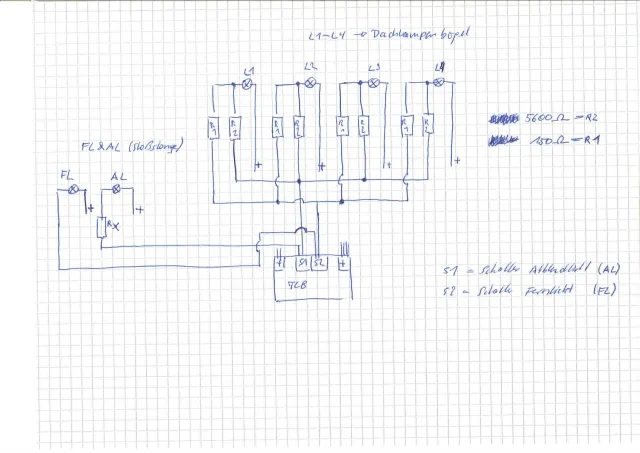 L1-L4 → Dachlampenbügel
L1
L2
L3
L4
R1
R2
R1
R2
R1
R2
R1
R2
5600Ω = R2
150Ω = R1
FL & AL (Stoßstange)
FL
AL
+
+
+
+
+
+
Rx
+
S1
S2
+
TCB
S1 = Schalter Abblendlicht (AL)
S2 = Schalter Fernlicht (FL)